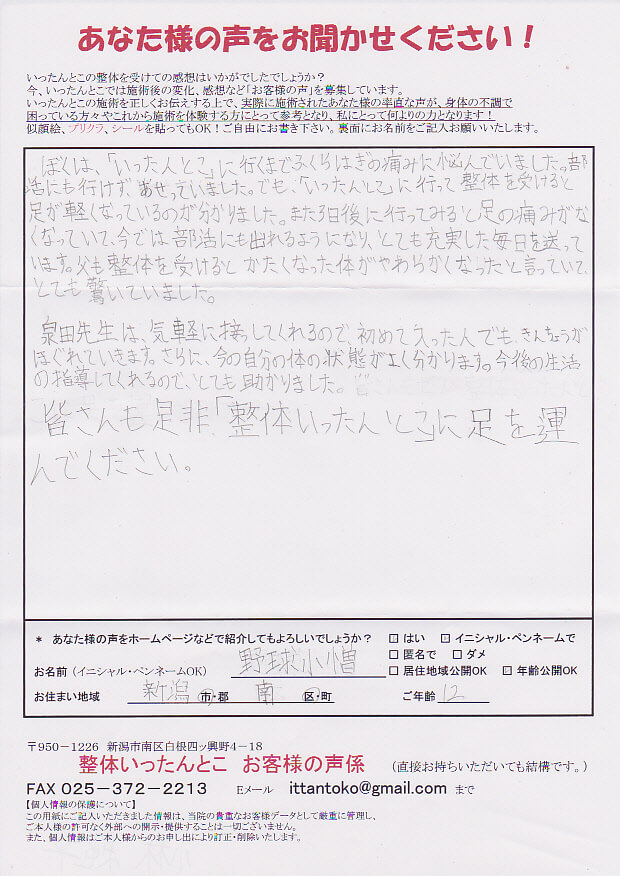 あなた様の声をお聞かせください！
いったんとこの整体を受けての感想はいかがでしたでしょうか？
今、いったんとこでは施術後の変化、感想など「お客様の声」を募集しています。
いったんとこの施術を正しくお伝えする上で、実際に施術されたあなた様の率直な声が、身体の不調で
困っている方々やこれから施術を体験する方にとって参考となり、私にとって何よりの力となります！
似顔絵、プリクラ、シールを貼ってもOK！ご自由にお書き下さい。裏面にお名前をご記入お願いいたします。
ぼくは、「いったんとこ」に行くまでふくらはぎの痛みに悩んでいました。部
活にも行けず、あせっていました。でも、「いったんとこ」に行って整体を受けると
足が軽くなっているのが分かりました。また3日後に行ってみると足の痛みがな
くなっていて、今では部活にも出れるようになり、とても充実した毎日を送って
います。父も整体を受けるとかたくなった体がやわらかくなったと言っていて、
とても驚いていました。
泉田先生は、気軽に接っしてくれるので、初めて入った人でも、きんちょうが
ほぐれていきます。さらに、今の自分の体の状態がよく分かります。今後の生活
の指導してくれるので、とても助かりました。
皆さんも是非、「整体いったんとこ」に足を運
んでください。
* あなた様の声をホームページなどで紹介してもよろしいでしょうか？ はい イニシャル・ペンネームで
匿名で ダメ
お名前（イニシャル・ペンネームOK） 野球小憎 居住地域公開OK 年齢公開OK
お住まい地域 新潟 市・郡 南 区・町 ご年齢 12
〒950－1226 新潟市南区白根四ッ興野4－18
整体いったんとこ お客様の声係 （直接お持ちいただいても結構です。）
FAX 025-372-2213 Eメール ittantoko@gmail.com まで
【個人情報の保護について】
この用紙にご記入いただきました情報は、当院の貴重なお客様データとして厳重に管理し、
ご本人様の許可なく外部への開示・提供することは一切ございません。
また、個人情報はご本人様からのお申し出により訂正・削除いたします。